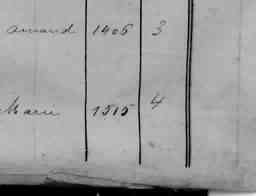 Amand 1406 3
Marie 1515 4